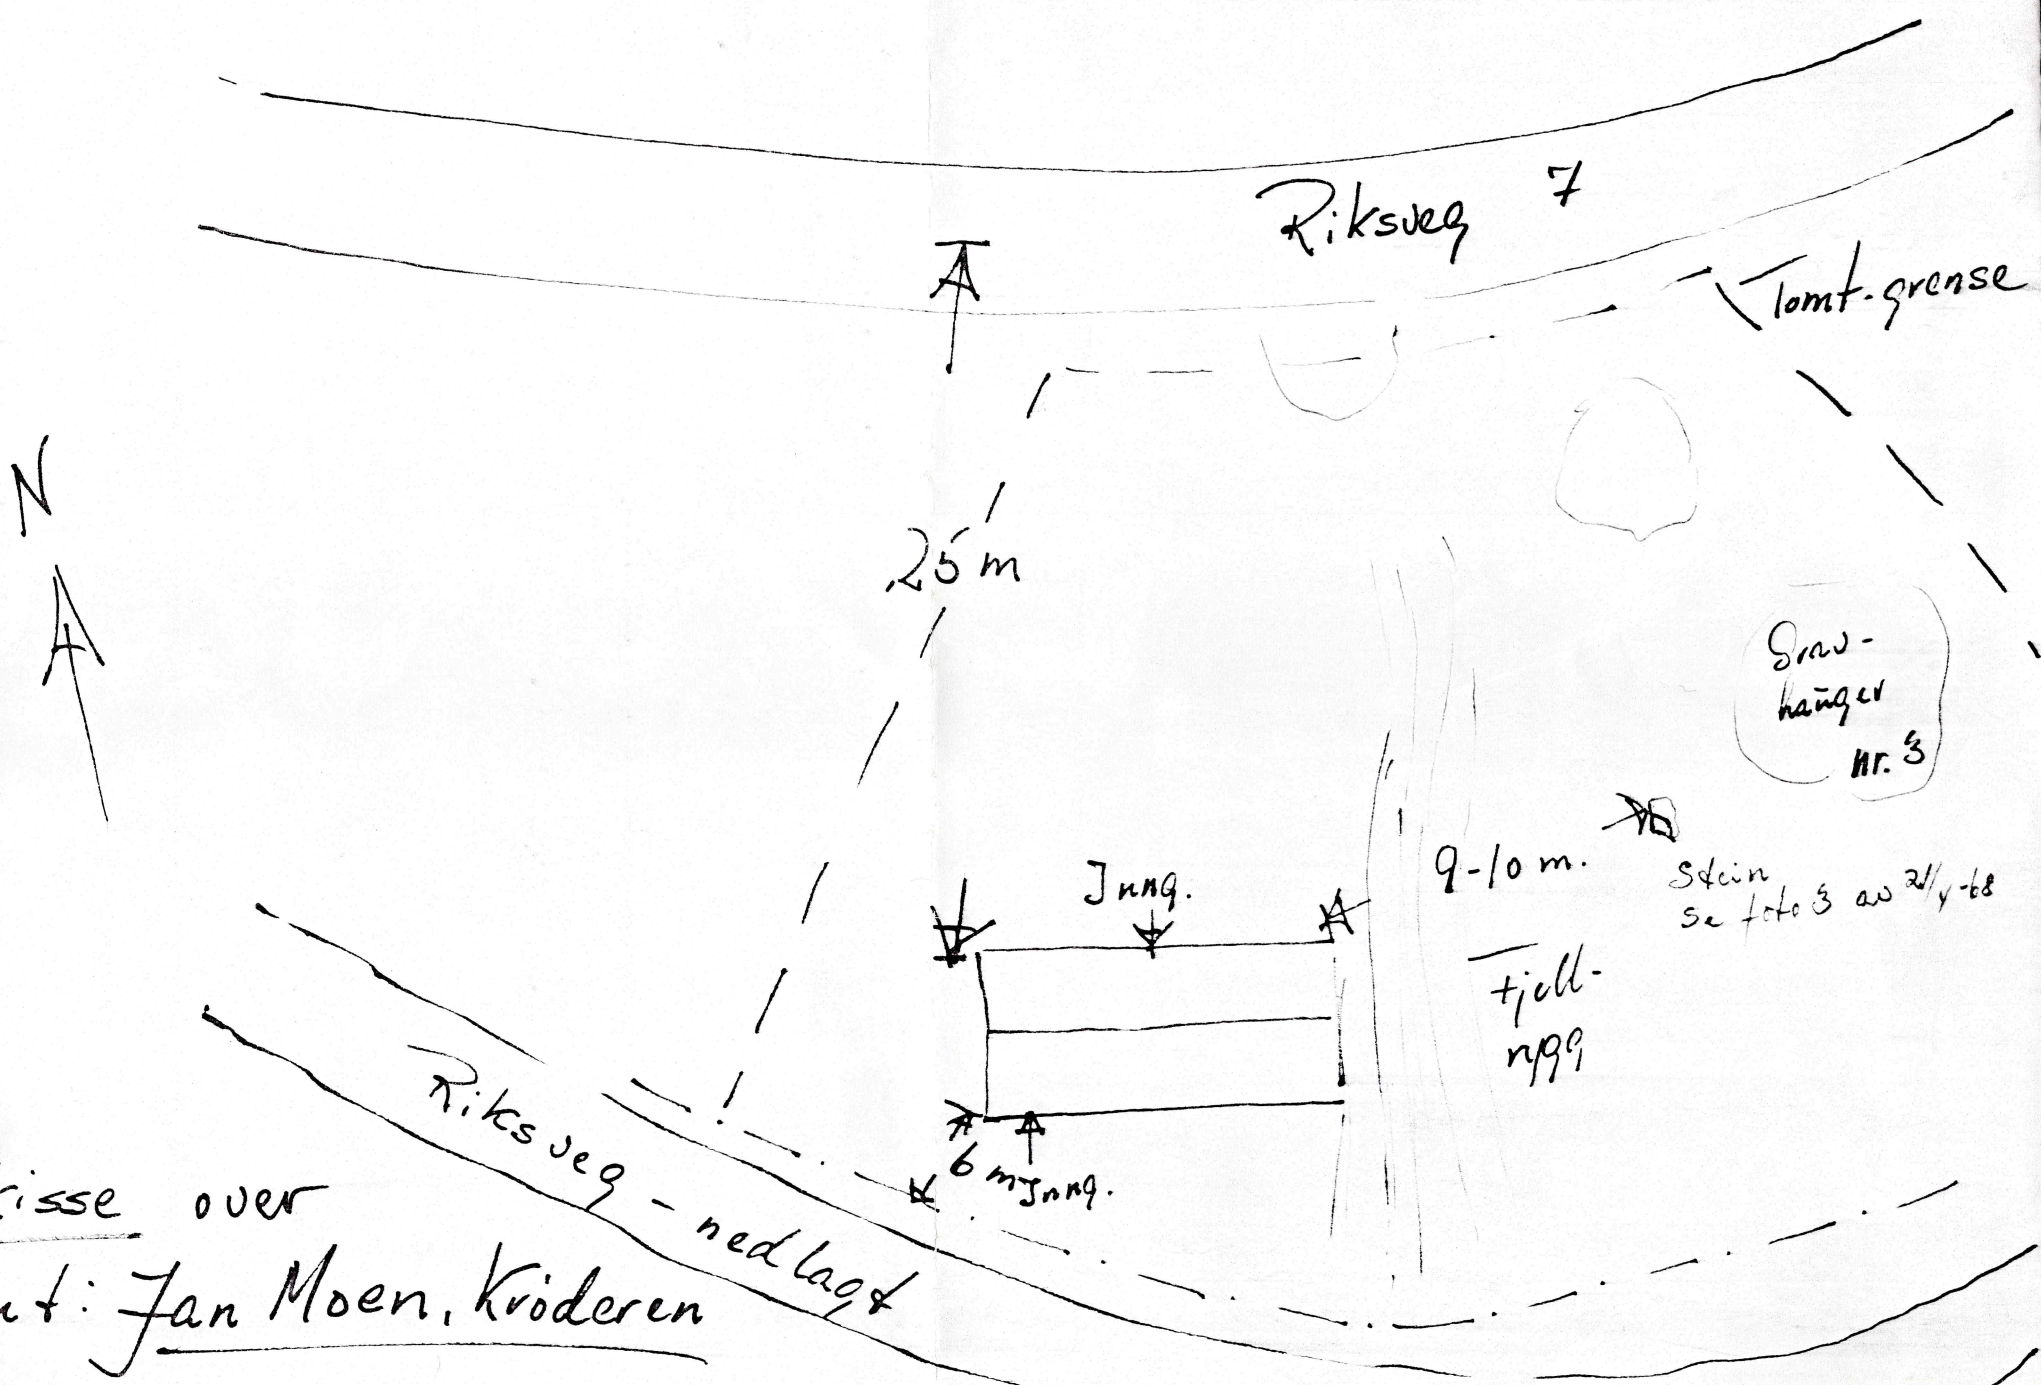 Riksveg 7
Tomt-grense
N
25 m
Grav-
hauger
nr. 3
9-10 m.
Stein
Se foto 3 av 21/4-68
Inng.
Fjell-
rygg
6 m
Inng.
Riksveg - nedlagt
risse over
t: Jan Moen, Krøderen